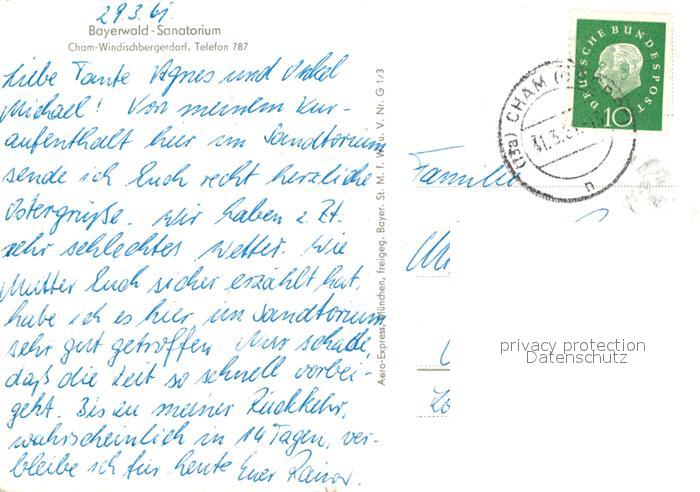 29.3.61.
Bayerwald-Sanatorium
Cham-Windischbergerdorf, Telefon 787
Liebe Tante Agnes und Onkel
Michael! Von meinem Kur-
aufenthalt hier im Sanatorium
sende ich Euch recht herzliche
Ostergrüße. Wir haben z. Zt.
sehr schlechtes Wetter. Wie
Mutter Euch sicher erzählt hat,
habe ich es hier im Sanatorium
sehr gut getroffen. Nur schade,
daß die Zeit so schnell vorbei-
geht. Bis zu meiner Rückkehr,
wahrscheinlich in 14 Tagen, ver-
bleibe ich für heute Euer Rainer.
Aero-Express, München, freigeg. Bayer. St. M. f. W. u. V. Nr. G 1/3
DEUTSCHE BUNDESPOST
10
(13a) CHAM
31.3.61
n
Familie
privacy protection
Datenschutz